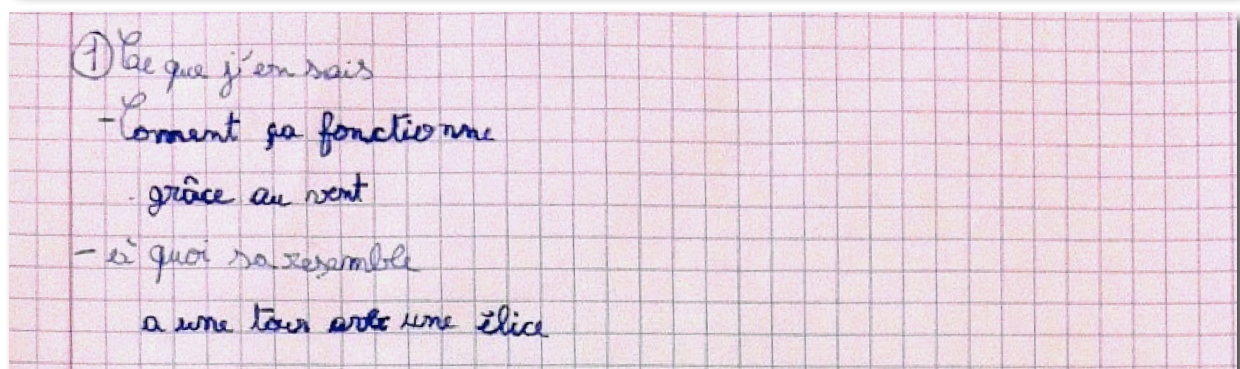 ① Ce que j'en sais
- Coment ça fonctionne
. grâce au vent
- à quoi sa resemble
a une tour avec une élice